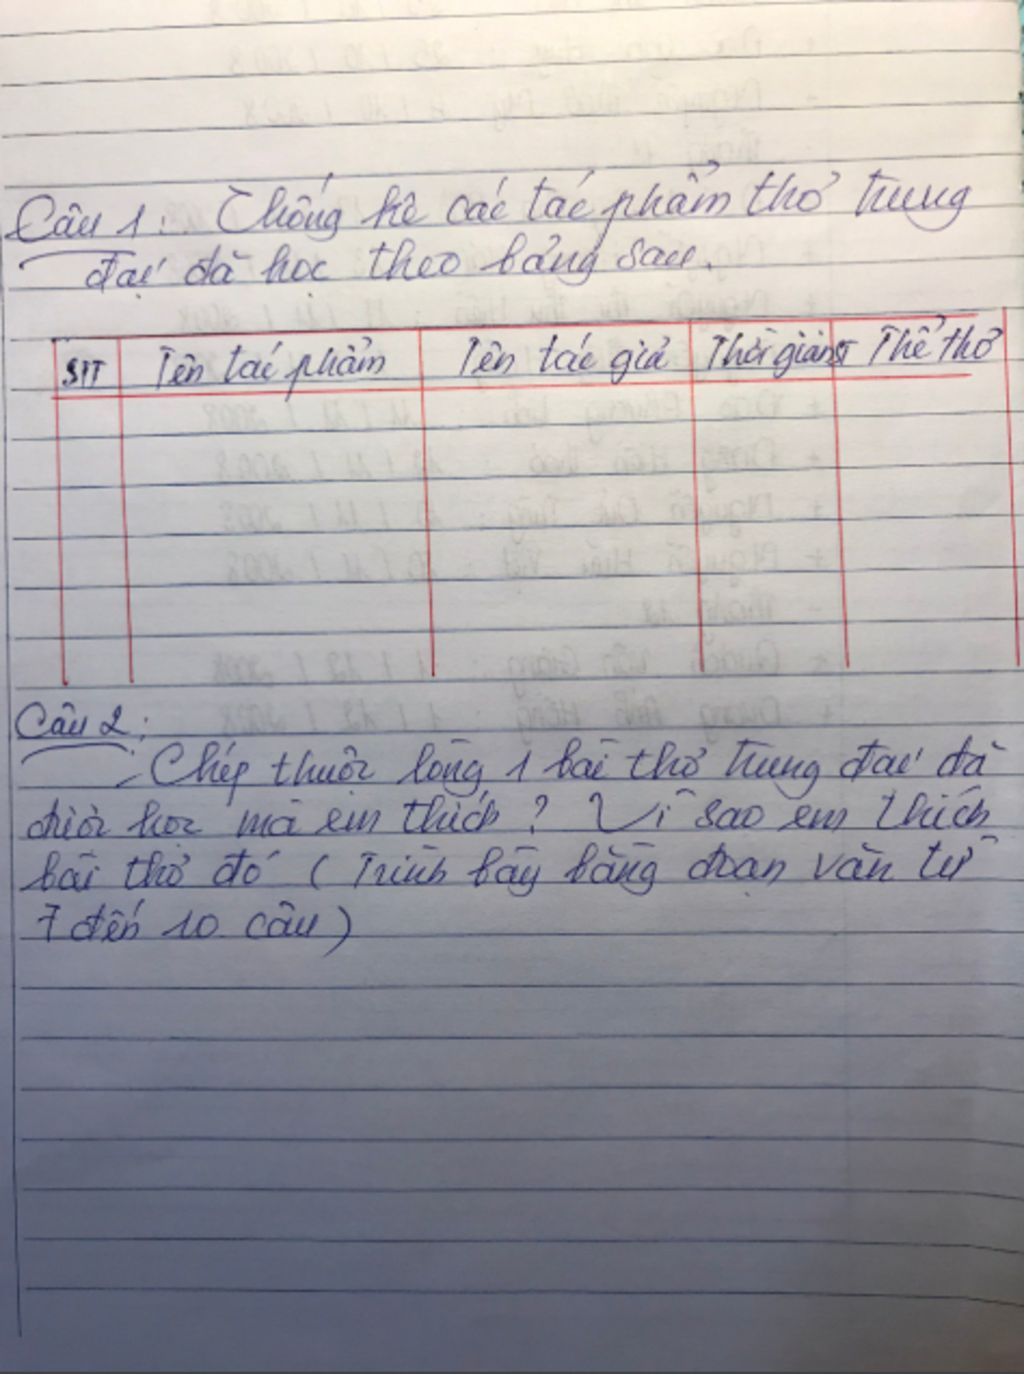 Câu 1: Thống kê các tác phẩm thơ trung
đại đã học theo bảng sau.
STT Tên tác phẩm Tên tác giả Thời gian ST Thể thơ
Câu 2:
Chép thuộc lòng 1 bài thơ trung đại đã
được học mà em thích? Vì sao em thích
bài thơ đó (Trình bày bằng đoạn văn từ
7 đến 10 câu)